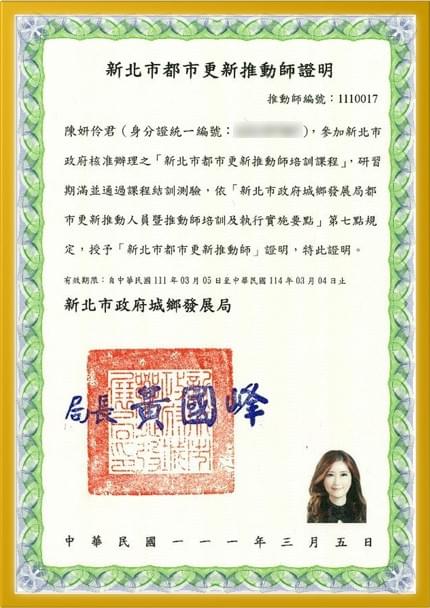 新北市都市更新推動師證明
推動師編號：1110017
陳妍伶君（身分證統一編號：），參加新北市
政府核准辦理之「新北市都市更新推動師培訓課程」，研習
期滿並通過課程結訓測驗，依「新北市政府城鄉發展局都
市更新推動人員暨推動師培訓及執行實施要點」第七點規
定，授予「新北市都市更新推動師」證明，特此證明。
有效期限：自中華民國111年03月05日至中華民國114年03月04日止
新北市政府城鄉發展局
局長 黃國峰
中華民國一一一年三月五日